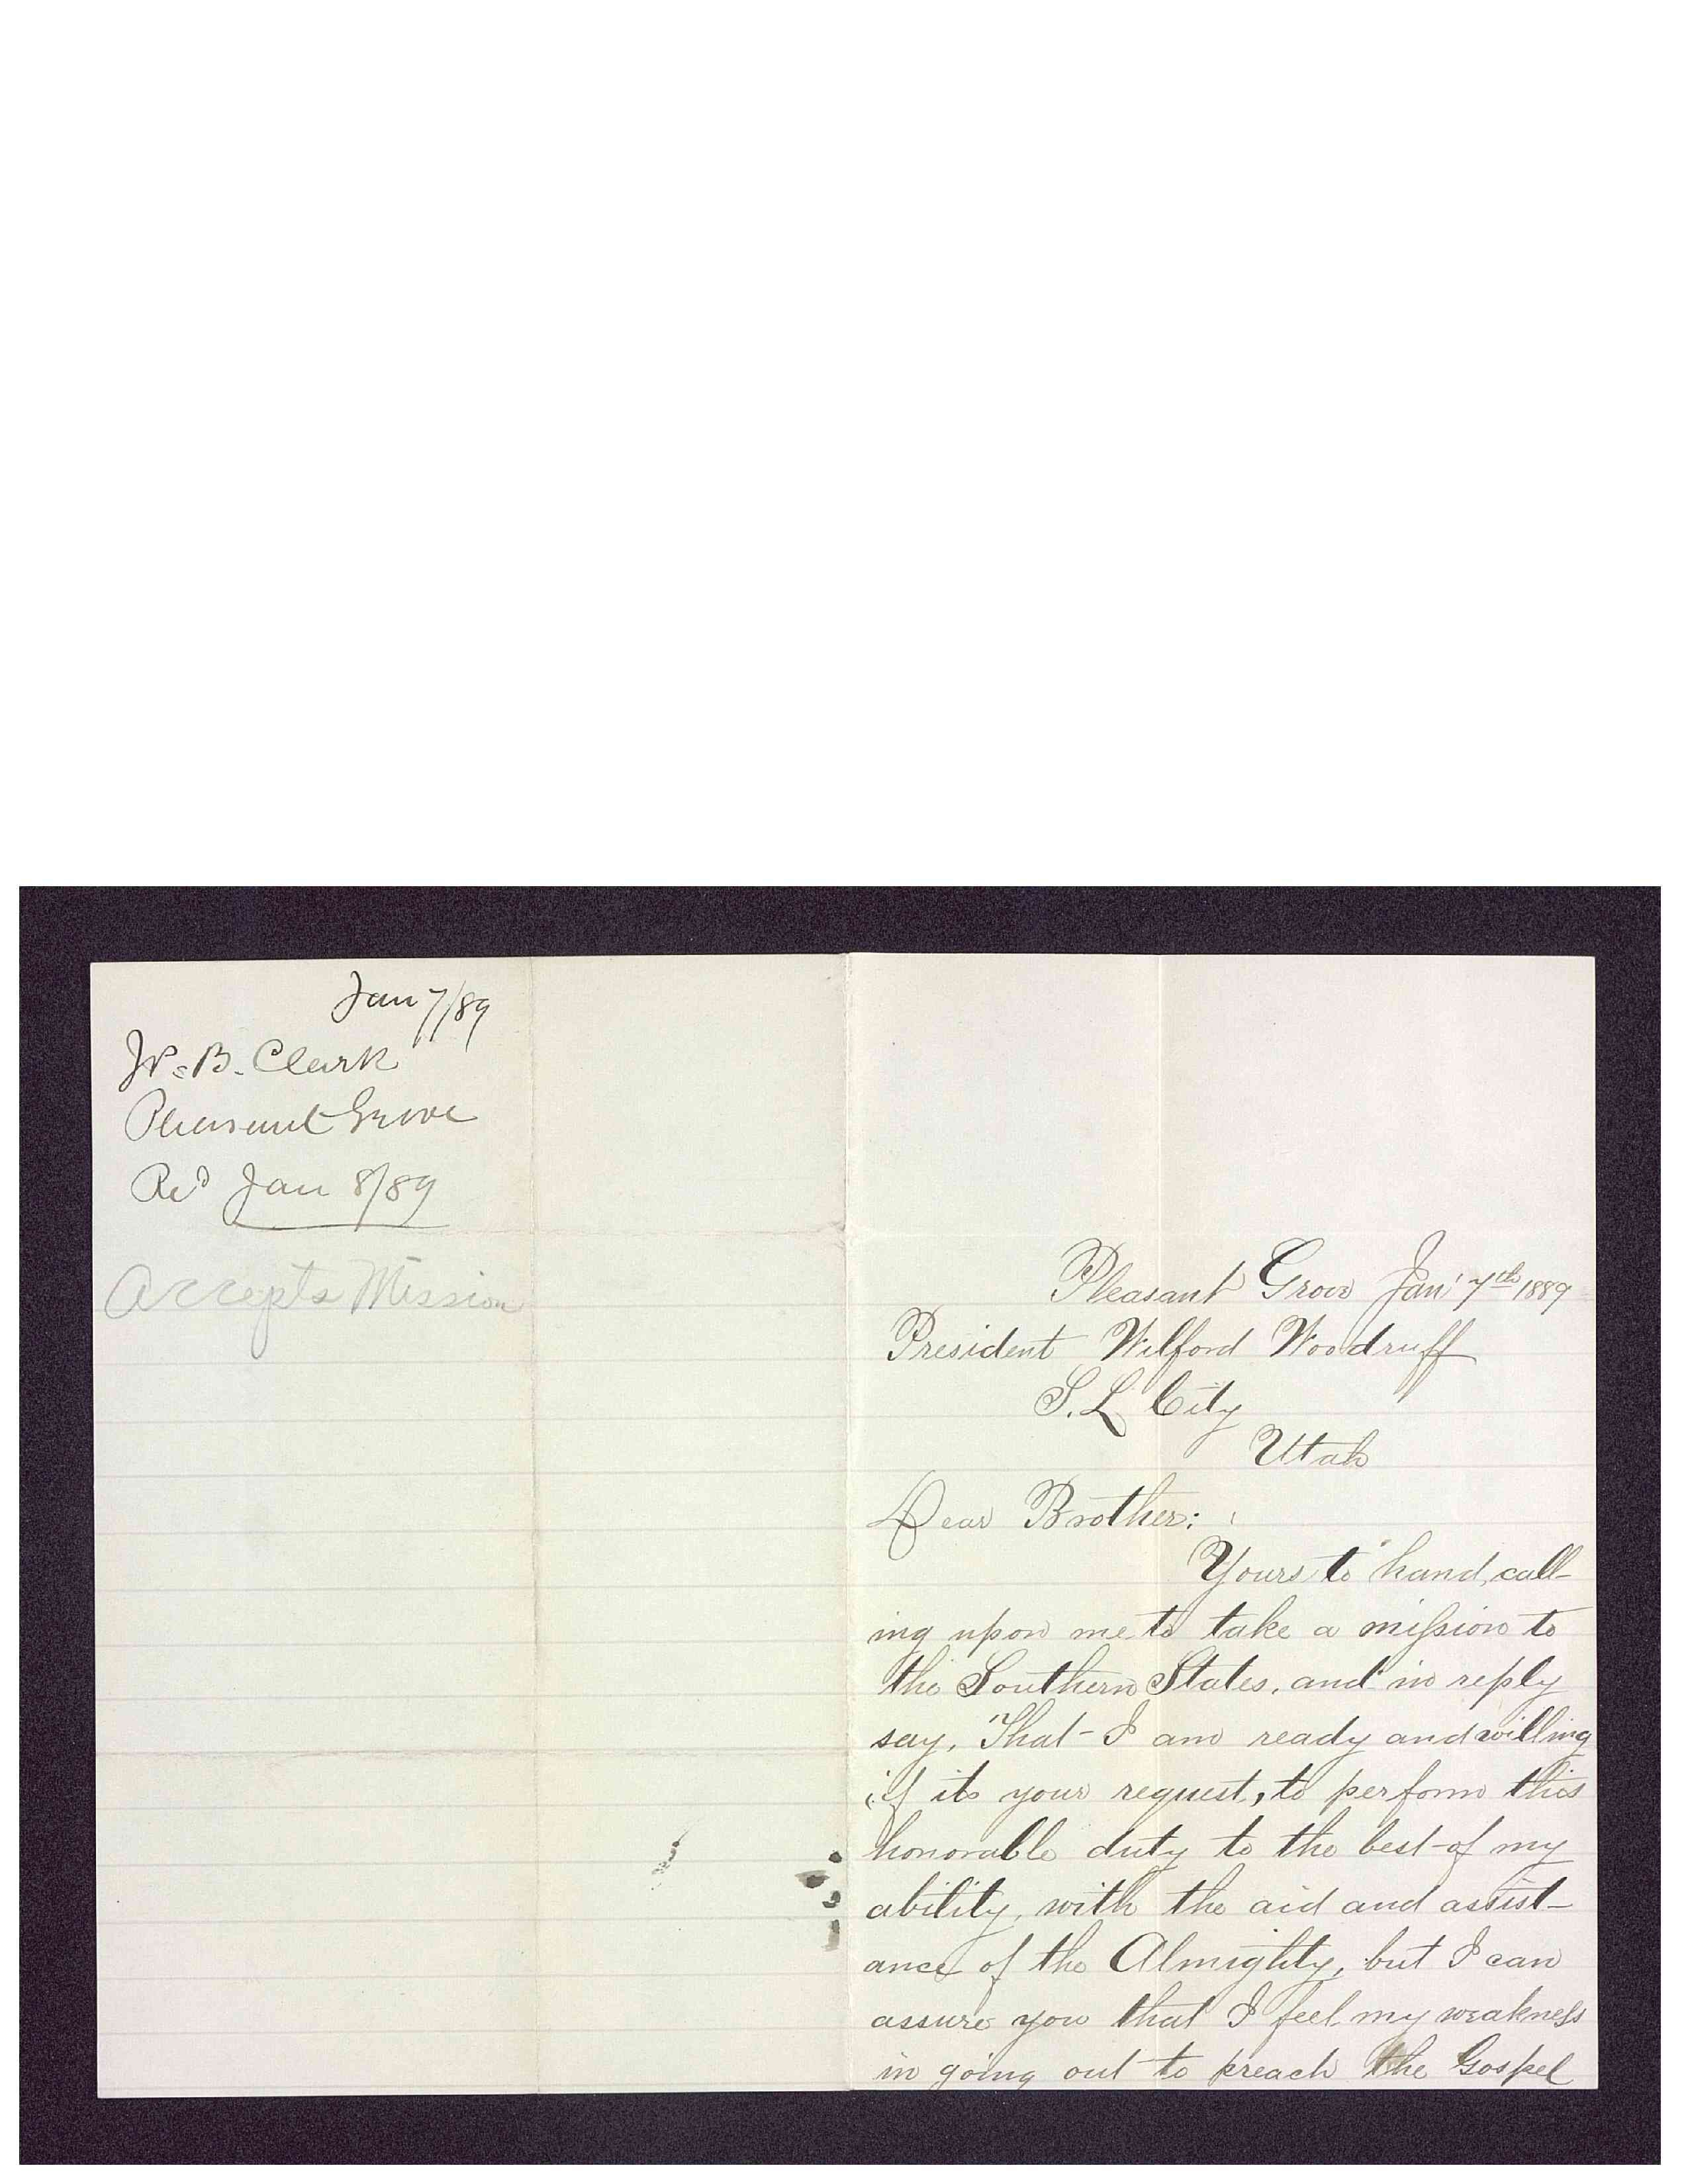 Jan 7/89
W. B. Clark
Pleasant Grove
Recd Jan 8/89
Accepts Mission
Pleasant Grove Jan' 7th 1889
President Wilford Woodruff
S. L. City
Utah
Dear Brother:
Yours to hand, call-
ing upon me to take a mission to
the Southern States, and in reply
say, That I am ready and willing
if its your request, to perform this
honorable duty to the best of my
ability, with the aid and assist-
ance of the Almighty, but I can
assure you that I feel my weakness
in going out to preach the Gospel